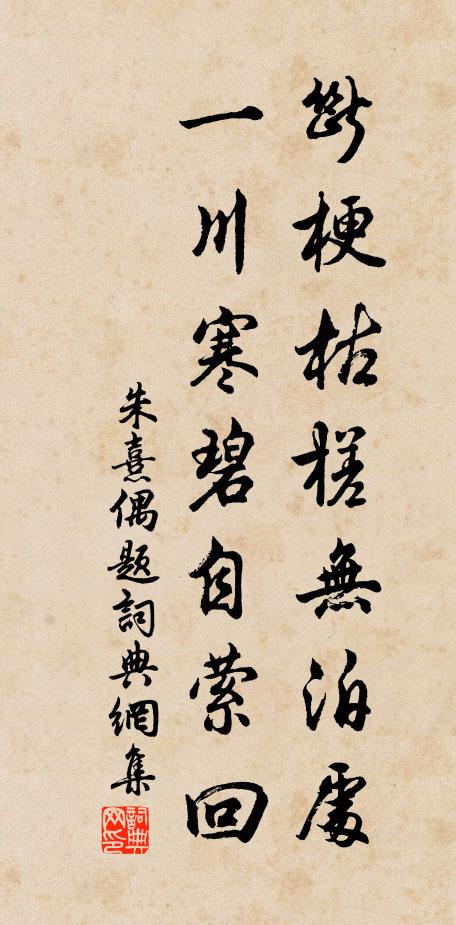 斷梗枯槎無泊處
一川寒碧自縈回
朱熹偶題詞典網集
詞典网印